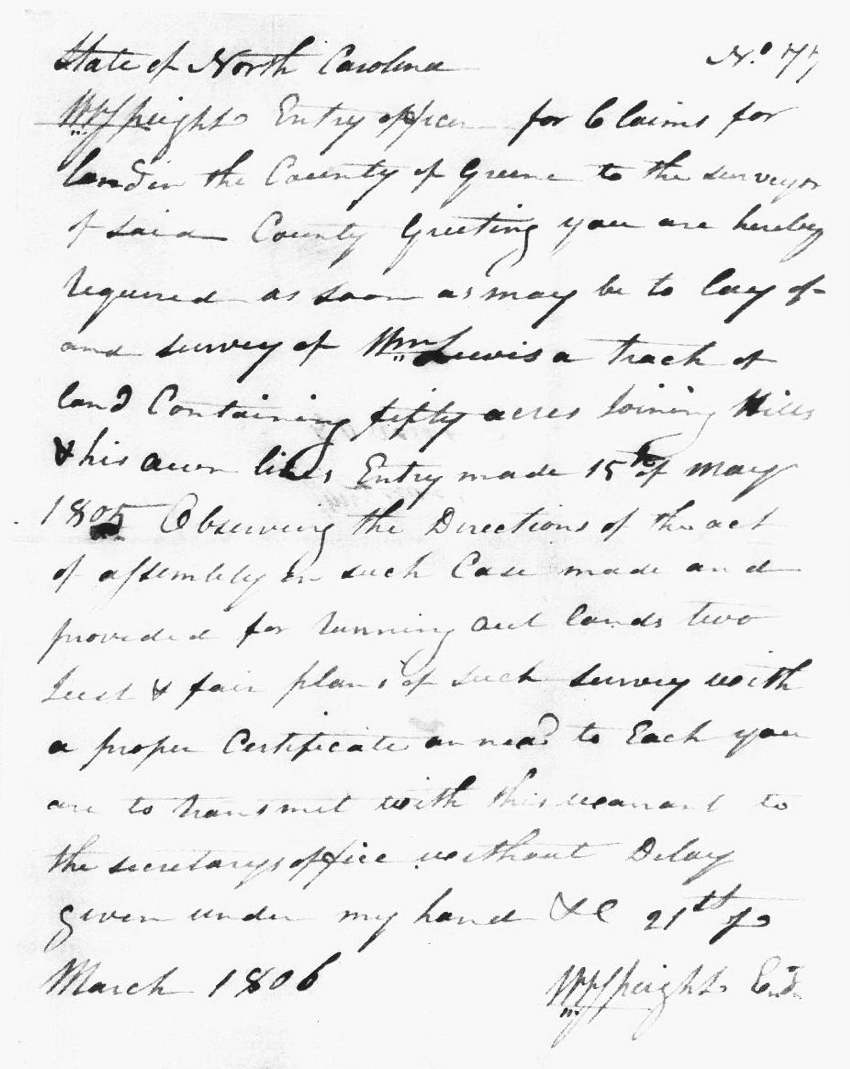 State of North Carolina No. 77
Wm Speight Entry officer for Claims for
land in the County of Greene to the surveyor
of said County Greeting you are hereby
required as soon as may be to lay of
and survey of Wm Lewis a track of
land Containing fifty acres Joining Hills
& his own lines Entry made 15th of may
1805 Observing the Directions of the act
of assembly in such Case made and
provided for running out lands two
Just & fair plans of such survey with
a proper Certificate annead to Each you
are to transmit with this warrant to
the secretarys office without Delay
given under my hand &C 21th of
March 1806 Wm Speight